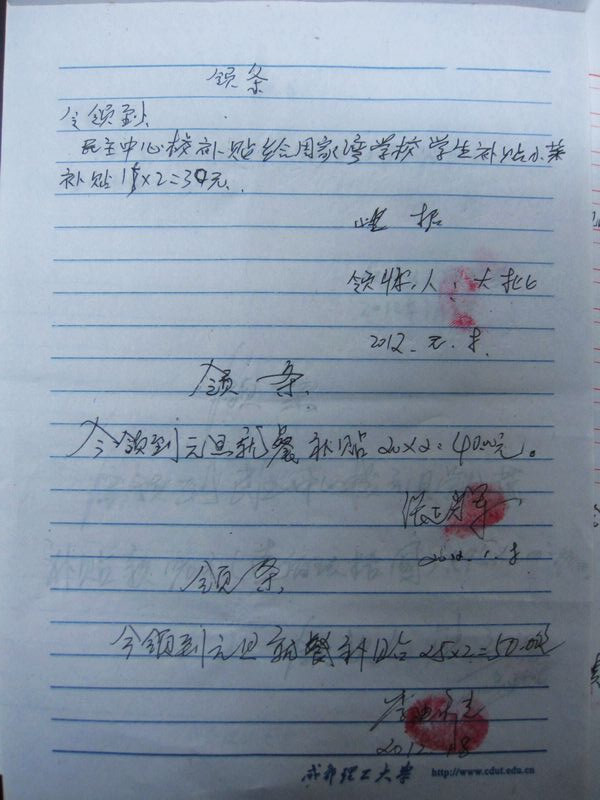 领条
今领到
民主中心校补贴给周家湾学校学生补贴小菜
补贴 17×2=34元.
收据
领条人:
2012.元.
领条.
今领到元旦就餐补贴20×2=40.00元。
2012.1.
领条.
今领到元旦就餐补贴 25×2=50.00
2012 1.8
成都理工大学 http://www.cdut.edu.cn